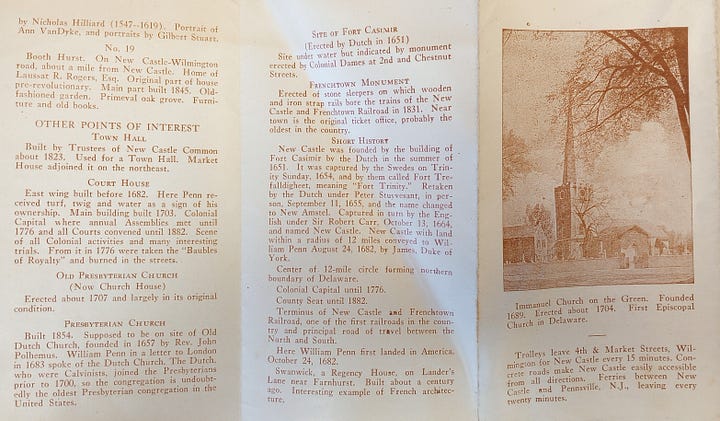 by Nicholas Hilliard (1547--1619). Portrait of
Ann VanDyke, and portraits by Gilbert Stuart.
No. 19
Booth Hurst. On New Castle-Wilmington
road, about a mile from New Castle. Home of
Laussat R. Rogers, Esq. Original part of house
pre-revolutionary. Main part built 1845. Old-
fashioned garden. Primeval oak grove. Furni-
ture and old books.
OTHER POINTS OF INTEREST
TOWN HALL
Built by Trustees of New Castle Common
about 1823. Used for a Town Hall. Market
House adjoined it on the northeast.
COURT HOUSE
East wing built before 1682. Here Penn re-
ceived turf, twig and water as a sign of his
ownership. Main building built 1703. Colonial
Capital where annual Assemblies met until
1776 and all Courts convened until 1882. Scene
of all Colonial activities and many interesting
trials. From it in 1776 were taken the "Baubles
of Royalty" and burned in the streets.
OLD PRESBYTERIAN CHURCH
(Now Church House)
Erected about 1707 and largely in its original
condition.
PRESBYTERIAN CHURCH
Built 1854. Supposed to be on site of Old
Dutch Church, founded in 1657 by Rev. John
Polhemus. William Penn in a letter to London
in 1683 spoke of the Dutch Church. The Dutch,
who were Calvinists, joined the Presbyterians
prior to 1700, so the congregation is undoubt-
edly the oldest Presbyterian congregation in the
United States.
SITE OF FORT CASIMIR
(Erected by Dutch in 1651)
Site under water but indicated by monument
erected by Colonial Dames at 2nd and Chestnut
Streets.
FRENCHTOWN MONUMENT
Erected of stone sleepers on which wooden
and iron strap rails bore the trains of the New
Castle and Frenchtown Railroad in 1831. Near
town is the original ticket office, probably the
oldest in the country.
SHORT HISTORY
New Castle was founded by the building of
Fort Casimir by the Dutch in the summer of
1651. It was captured by the Swedes on Trin-
ity Sunday, 1654, and by them called Fort Tre-
falldigheet, meaning "Fort Trinity." Retaken
by the Dutch under Peter Stuyvesant, in per-
son, September 11, 1655, and the name changed
to New Amstel. Captured in turn by the Eng-
lish under Sir Robert Carr, October 13, 1664,
and named New Castle. New Castle with land
within a radius of 12 miles conveyed to Wil-
liam Penn August 24, 1682, by James, Duke of
York.
Center of 12-mile circle forming northern
boundary of Delaware.
Colonial Capital until 1776.
County Seat until 1882.
Terminus of New Castle and Frenchtown
Railroad, one of the first railroads in the coun-
try and principal road of travel between the
North and South.
Here William Penn first landed in America.
October 24, 1682.
Swanwick, a Regency House, on Lander's
Lane near Farnhurst. Built about a century
ago. Interesting example of French architec-
ture.
Immanuel Church on the Green. Founded
1689. Erected about 1704. First Episcopal
Church in Delaware.
Trolleys leave 4th & Market Streets, Wil-
mington for New Castle every 15 minutes. Con-
crete roads make New Castle easily accessible
from all directions. Ferries between New
Castle and Pennsville, N.J., leaving every
twenty minutes.